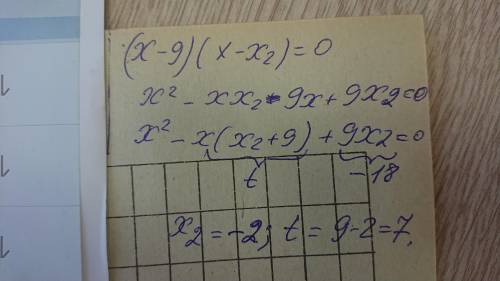 (x-9)(x-x₂)=0
x²-xx₂-9x+9x₂=0
x²-x(x₂+9)+9x₂=0
t -18
x₂=-2; t=9-2=7.